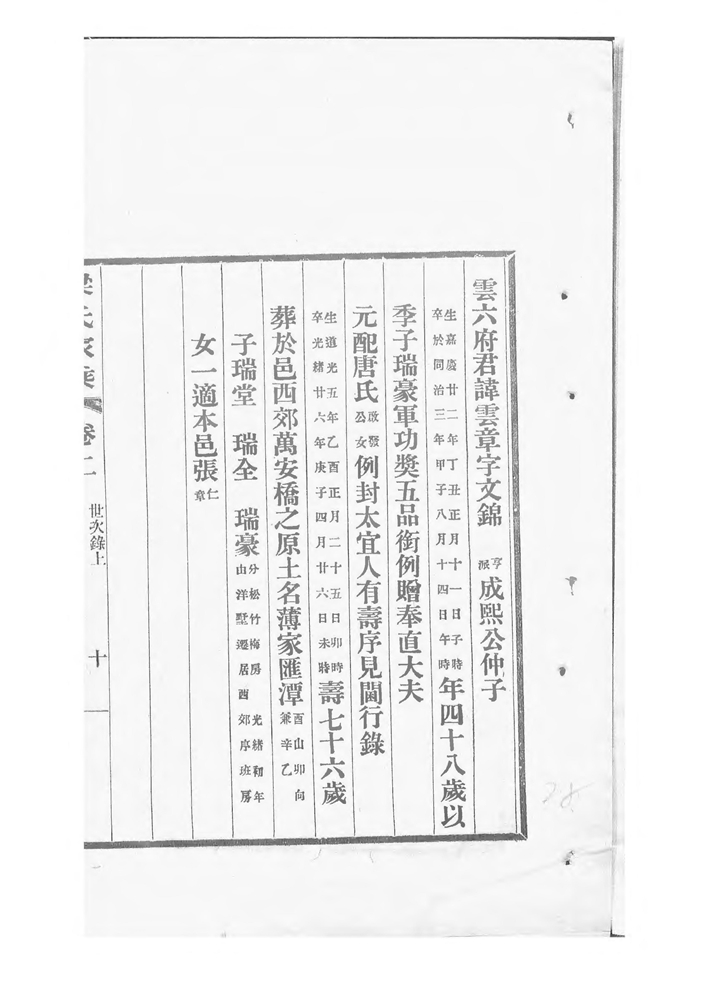 雲六府君諱雲章字文錦亨派成熙公仲子
生嘉慶廿二年丁丑正月十一日子時卒於同治三年甲子八月十四日午時年四十八歲以
季子瑞豪軍功獎五品銜例贈奉直大夫
元配唐氏啟發公女例封太宜人有壽序見閫行錄
生道光五年乙酉正月二十五日卯時卒光緒廿六年庚子四月廿六日未時壽七十六歲
葬於邑西郊萬安橋之原土名薄家匯潭酉山卯向兼辛乙
子瑞堂 瑞全 瑞豪分松竹梅房光緒初年由洋墅遷居西郊序班房
女一適本邑張仁章
梁氏家乘 卷二 世次錄上 十
28